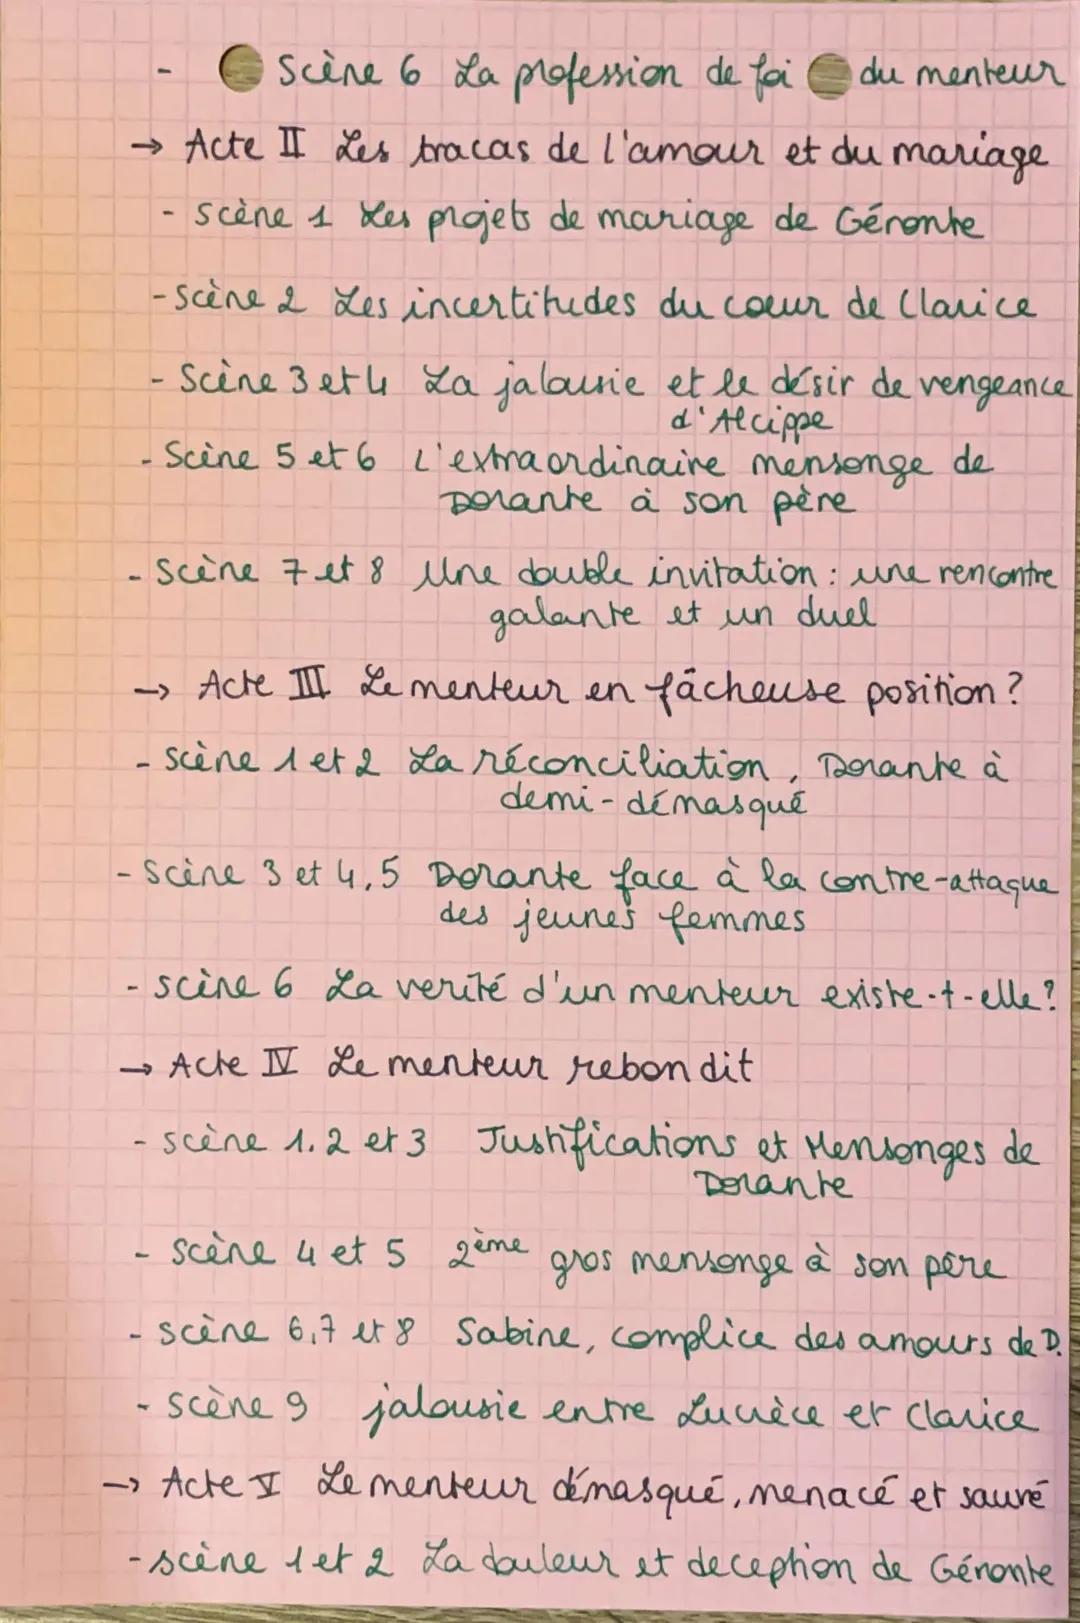 - Scène 6 La profession de foi du menteur
→ Acte II Les tracas de l'amour et du mariage
- scène 1 Les projets de mariage de Géronte
- Scène 2 Les incertitudes du coeur de Clarice
- Scène 3 et 4 La jalousie et le désir de vengeance
d'Alcippe
- Scène 5 et 6 L'extraordinaire mensonge de
Dorante à son père
- Scène 7 et 8 Une double invitation : une rencontre
galante et un duel
→ Acte III Le menteur en fâcheuse position ?
- scène 1 et 2 La réconciliation, Dorante à
demi-démasqué
- Scène 3 et 4,5 Dorante face à la contre-attaque
des jeunes femmes
- scène 6 La verité d'un menteur existe-t-elle ?
→ Acte IV Le menteur rebondit
- scène 1.2 et 3 Justifications et Mensonges de
Dorante
- scène 4 et 5 2ème gros mensonge à son père
- scène 6,7 et 8 Sabine, complice des amours de D.
- scène 9 jalousie entre Lucrèce et Clarice
→ Acte V Le menteur démasqué, menacé et sauvé
- scène 1 et 2 La douleur et deception de Géronte